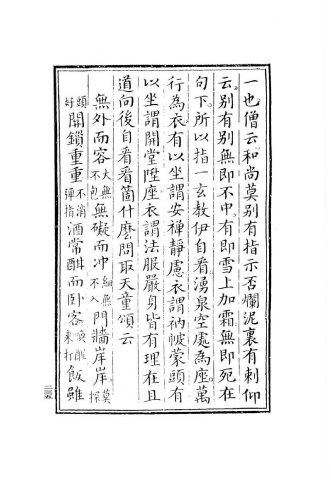 一也僧云和尚莫別有指示否爛泥裏有刺仰
云別有別無即不中有即雪上加霜無即死在
句下所以指一玄教伊自看湧泉空處為座萬
行為衣有以坐謂安禪靜慮衣謂衲帔蒙頭有
以坐謂開堂陞座衣謂法服嚴身皆有理在且
道向後自看看箇什麼問取天童頌云
無外而容大無不包無礙而沖細無不入門牆岸岸莫探
頭好關鎖重重不消彈指酒常酣而臥客喚醒來打飯雖